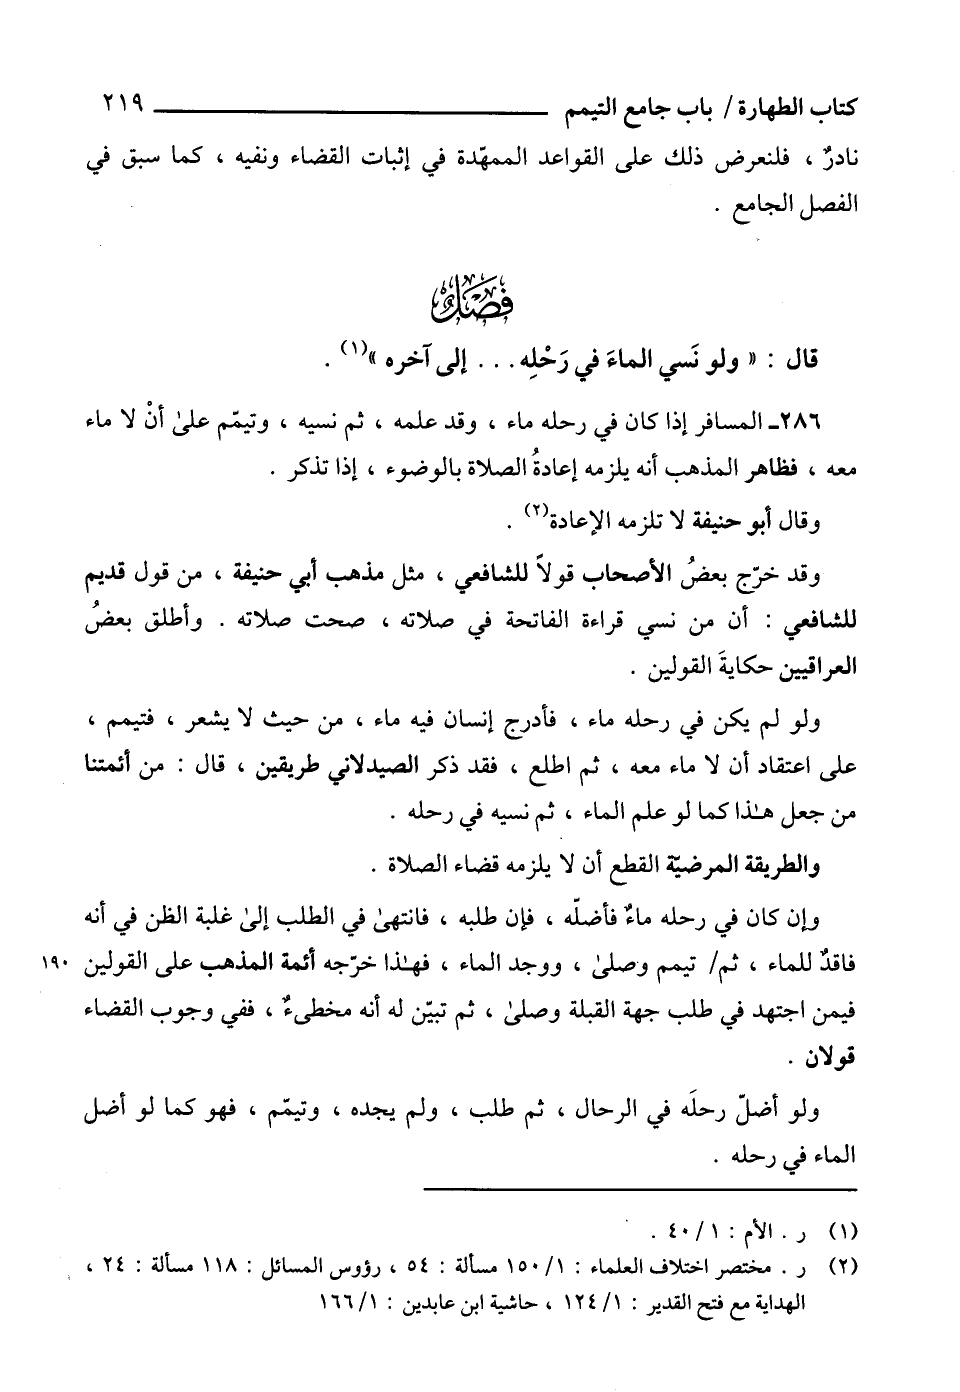 كتاب الطهارة / باب جامع التيمم ٢١٩
نادرٌ ، فلنعرض ذلك على القواعد الممهّدة في إثبات القضاء ونفيه ، كما سبق في
الفصل الجامع .
فصل
قال : « ولو نَسي الماءَ في رَحْلِه . . . إلى آخره »(١) .
٢٨٦ـ المسافر إذا كان في رحله ماء ، وقد علمه ، ثم نسيه ، وتيمّم علىٰ أنْ لا ماء
معه ، فظاهر المذهب أنه يلزمه إعادةُ الصلاة بالوضوء ، إذا تذكر .
وقال أبو حنيفة لا تلزمه الإعادة(٢) .
وقد خرّج بعضُ الأصحاب قولاً للشافعي ، مثل مذهب أبي حنيفة ، من قول قديم
للشافعي : أن من نسي قراءة الفاتحة في صلاته ، صحت صلاته . وأطلق بعضُ
العراقيين حكايةَ القولين .
ولو لم يكن في رحله ماء ، فأدرج إنسان فيه ماء ، من حيث لا يشعر ، فتيمم ،
على اعتقاد أن لا ماء معه ، ثم اطلع ، فقد ذكر الصيدلاني طريقين ، قال : من أئمتنا
من جعل هـٰذا كما لو علم الماء ، ثم نسيه في رحله .
والطريقة المرضيّة القطع أن لا يلزمه قضاء الصلاة .
وإن كان في رحله ماءٌ فأضلّه ، فإن طلبه ، فانتهىٰ في الطلب إلىٰ غلبة الظن في أنه
فاقدٌ للماء ، ثم/ تيمم وصلىٰ ، ووجد الماء ، فهـٰذا خرّجه أئمة المذهب على القولين ١٩٠
فيمن اجتهد في طلب جهة القبلة وصلىٰ ، ثم تبيّن له أنه مخطىءٌ ، ففي وجوب القضاء
قولان .
ولو أضلّ رحلَه في الرحال ، ثم طلب ، ولم يجده ، وتيمّم ، فهو كما لو أضل
الماء في رحله .
(١) ر . الأم : ١/ ٤٠ .
(٢) ر . مختصر اختلاف العلماء : ١/ ١٥٠ مسألة : ٥٤ ، رؤوس المسائل : ١١٨ مسألة : ٢٤ ،
الهداية مع فتح القدير : ١/ ١٢٤ ، حاشية ابن عابدين : ١/ ١٦٦